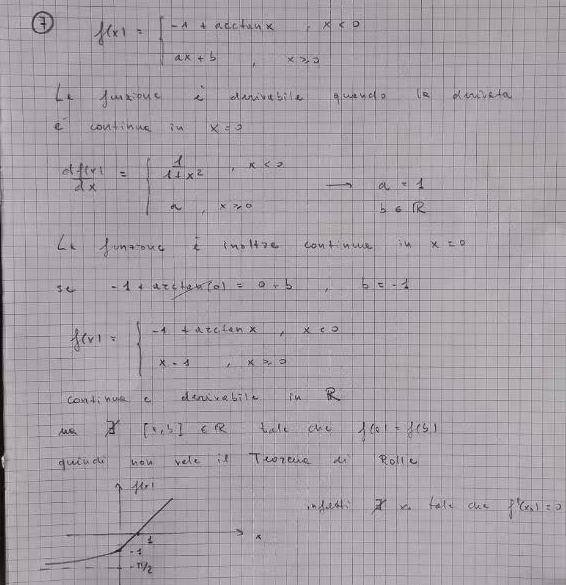 7 f(x) = { -1 + arctan x , x < 0
ax + b , x ≥ 0
La funzione è derivabile quando la derivata
è continua in x = 0
df(x)/dx = { 1/(1+x²) , x < 0
a , x ≥ 0 → a = 1
b ∈ ℝ
La funzione è inoltre continua in x = 0
se -1 + arctan(0) = 0 + b , b = -1
f(x) = { -1 + arctan x , x < 0
x - 1 , x ≥ 0
continua e derivabile in ℝ
ma ∄ [a,b] ∈ ℝ tale che f(a) = f(b)
quindi non vale il Teorema di Rolle
f(x)
infatti ∄ x₀ tale che f'(x₀) = 0
x
1
-1
-π/2